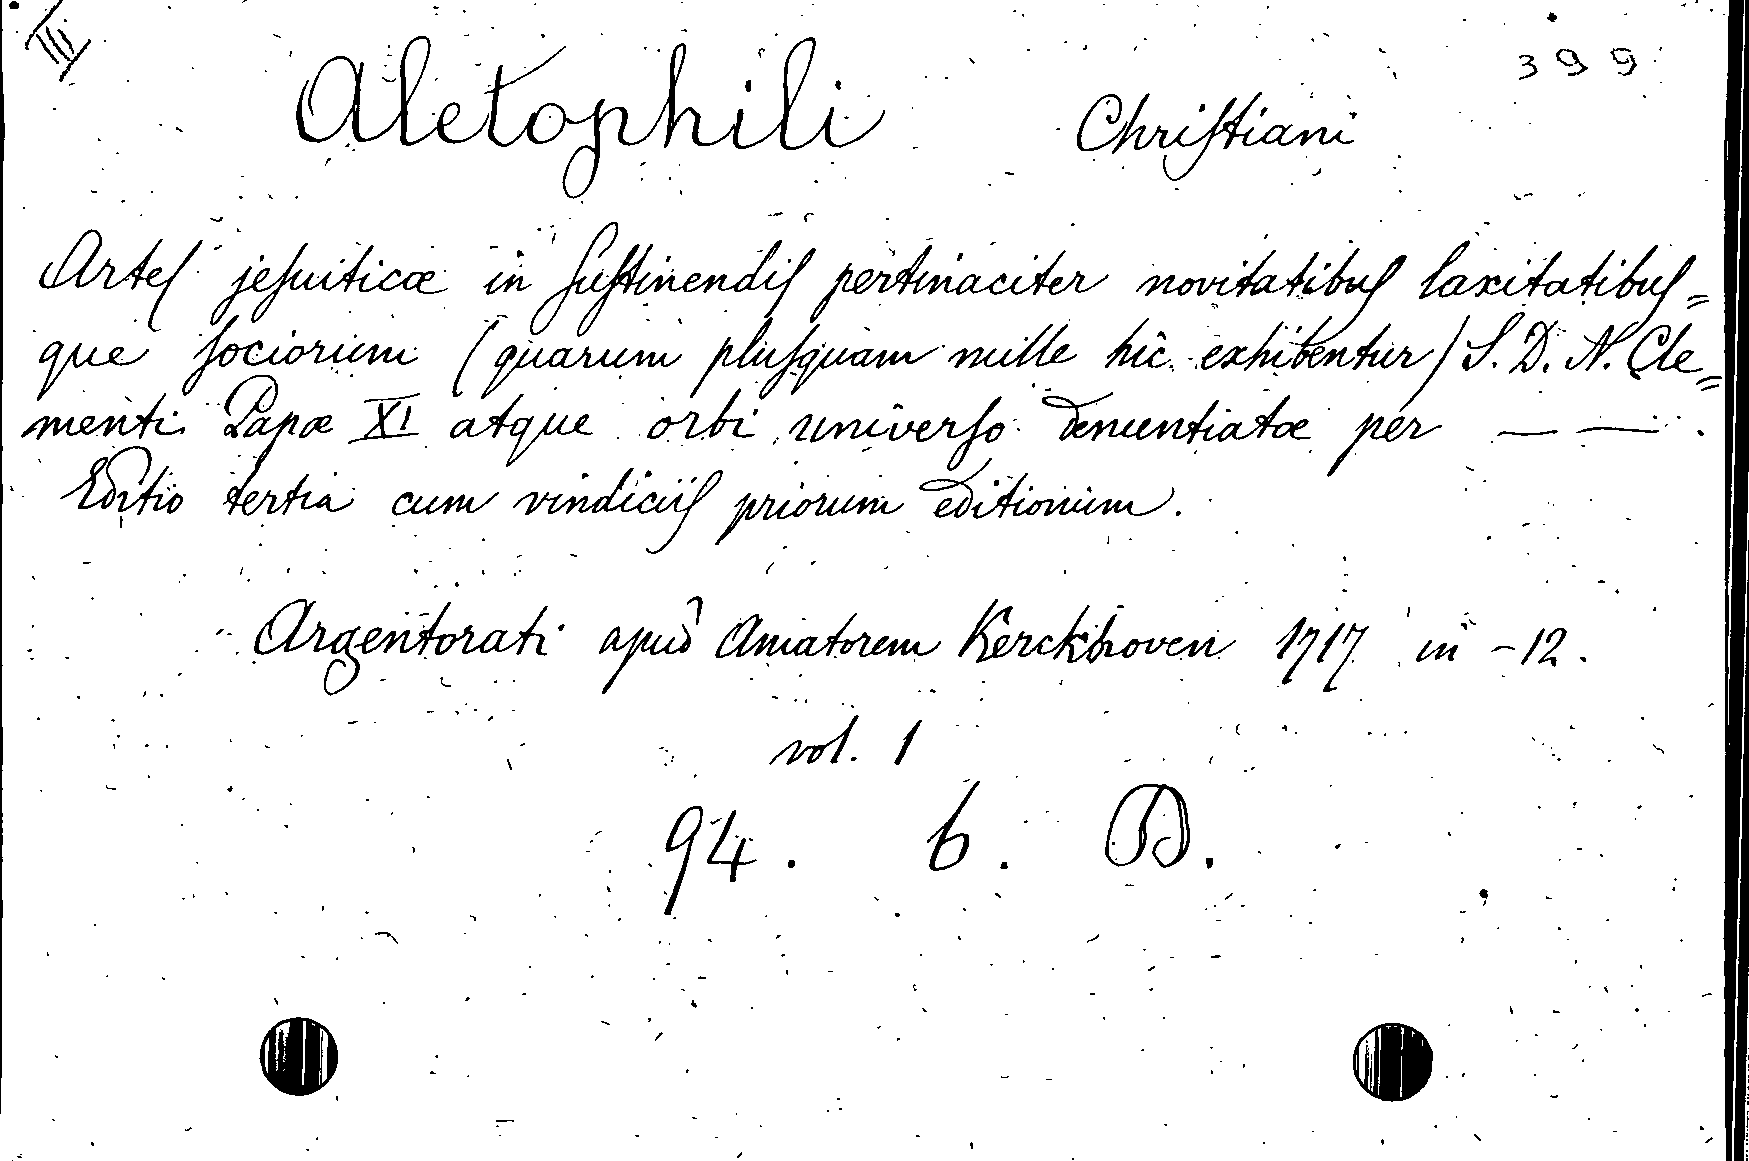 III
399
Aletophili Chriſtiani
Arteſ jeſuiticæ in ſuſtinendiſ pertinaciter novitatibuſ laxitatibuſ=
que ſociorum (quarum pluſquam mille hîc exhibentur) S. D. N. Cle=
menti Papæ XI atque orbi univerſo denuntiatæ per — — .
Editio tertia cum vindiciiſ priorum editionum.
Argentorati apud Amatorem Kerckhoven 1717 in -12.
vol. 1
94. 6. D.